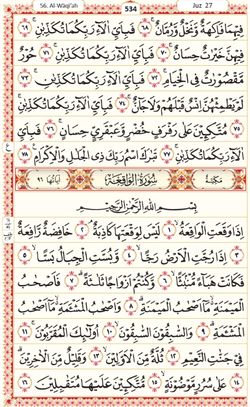 56. Al-Wāqi'ah
534
Juz 27
فِيهِمَا فَٰكِهَةٌ وَنَخْلٌ وَرُمَّانٌ ٦٨ فَبِأَيِّ ءَالَآءِ رَبِّكُمَا تُكَذِّبَانِ ٦٩
فِيهِنَّ خَيْرَٰتٌ حِسَانٌ ٧٠ فَبِأَيِّ ءَالَآءِ رَبِّكُمَا تُكَذِّبَانِ ٧١ حُورٌ
مَّقْصُورَٰتٌ فِي ٱلْخِيَامِ ٧٢ فَبِأَيِّ ءَالَآءِ رَبِّكُمَا تُكَذِّبَانِ ٧٣ لَمْ
يَطْمِثْهُنَّ إِنسٌ قَبْلَهُمْ وَلَا جَآنٌّ ٧٤ فَبِأَيِّ ءَالَآءِ رَبِّكُمَا تُكَذِّبَانِ
٧٥ مُتَّكِـِٔينَ عَلَىٰ رَفْرَفٍ خُضْرٍ وَعَبْقَرِيٍّ حِسَانٍ ٧٦ فَبِأَيِّ
ءَالَآءِ رَبِّكُمَا تُكَذِّبَانِ ٧٧ تَبَٰرَكَ ٱسْمُ رَبِّكَ ذِي ٱلْجَلَٰلِ وَٱلْإِكْرَامِ ٧٨
مكية سُورَةُ الْوَاقِعَةِ آياتها ٩٦
بِسْمِ ٱللَّهِ ٱلرَّحْمَٰنِ ٱلرَّحِيمِ
إِذَا وَقَعَتِ ٱلْوَاقِعَةُ ١ لَيْسَ لِوَقْعَتِهَا كَاذِبَةٌ ٢ خَافِضَةٌ رَّافِعَةٌ
٣ إِذَا رُجَّتِ ٱلْأَرْضُ رَجًّا ٤ وَبُسَّتِ ٱلْجِبَالُ بَسًّا ٥
فَكَانَتْ هَبَآءً مُّنۢبَثًّا ٦ وَكُنتُمْ أَزْوَٰجًا ثَلَٰثَةً ٧ فَأَصْحَٰبُ
ٱلْمَيْمَنَةِ مَآ أَصْحَٰبُ ٱلْمَيْمَنَةِ ٨ وَأَصْحَٰبُ ٱلْمَشْـَٔمَةِ مَآ أَصْحَٰبُ
ٱلْمَشْـَٔمَةِ ٩ وَٱلسَّٰبِقُونَ ٱلسَّٰبِقُونَ ١٠ أُو۟لَٰٓئِكَ ٱلْمُقَرَّبُونَ ١١
فِي جَنَّٰتِ ٱلنَّعِيمِ ١٢ ثُلَّةٌ مِّنَ ٱلْأَوَّلِينَ ١٣ وَقَلِيلٌ مِّنَ ٱلْءَاخِرِينَ
١٤ عَلَىٰ سُرُرٍ مَّوْضُونَةٍ ١٥ مُّتَّكِـِٔينَ عَلَيْهَا مُتَقَٰبِلِينَ ١٦